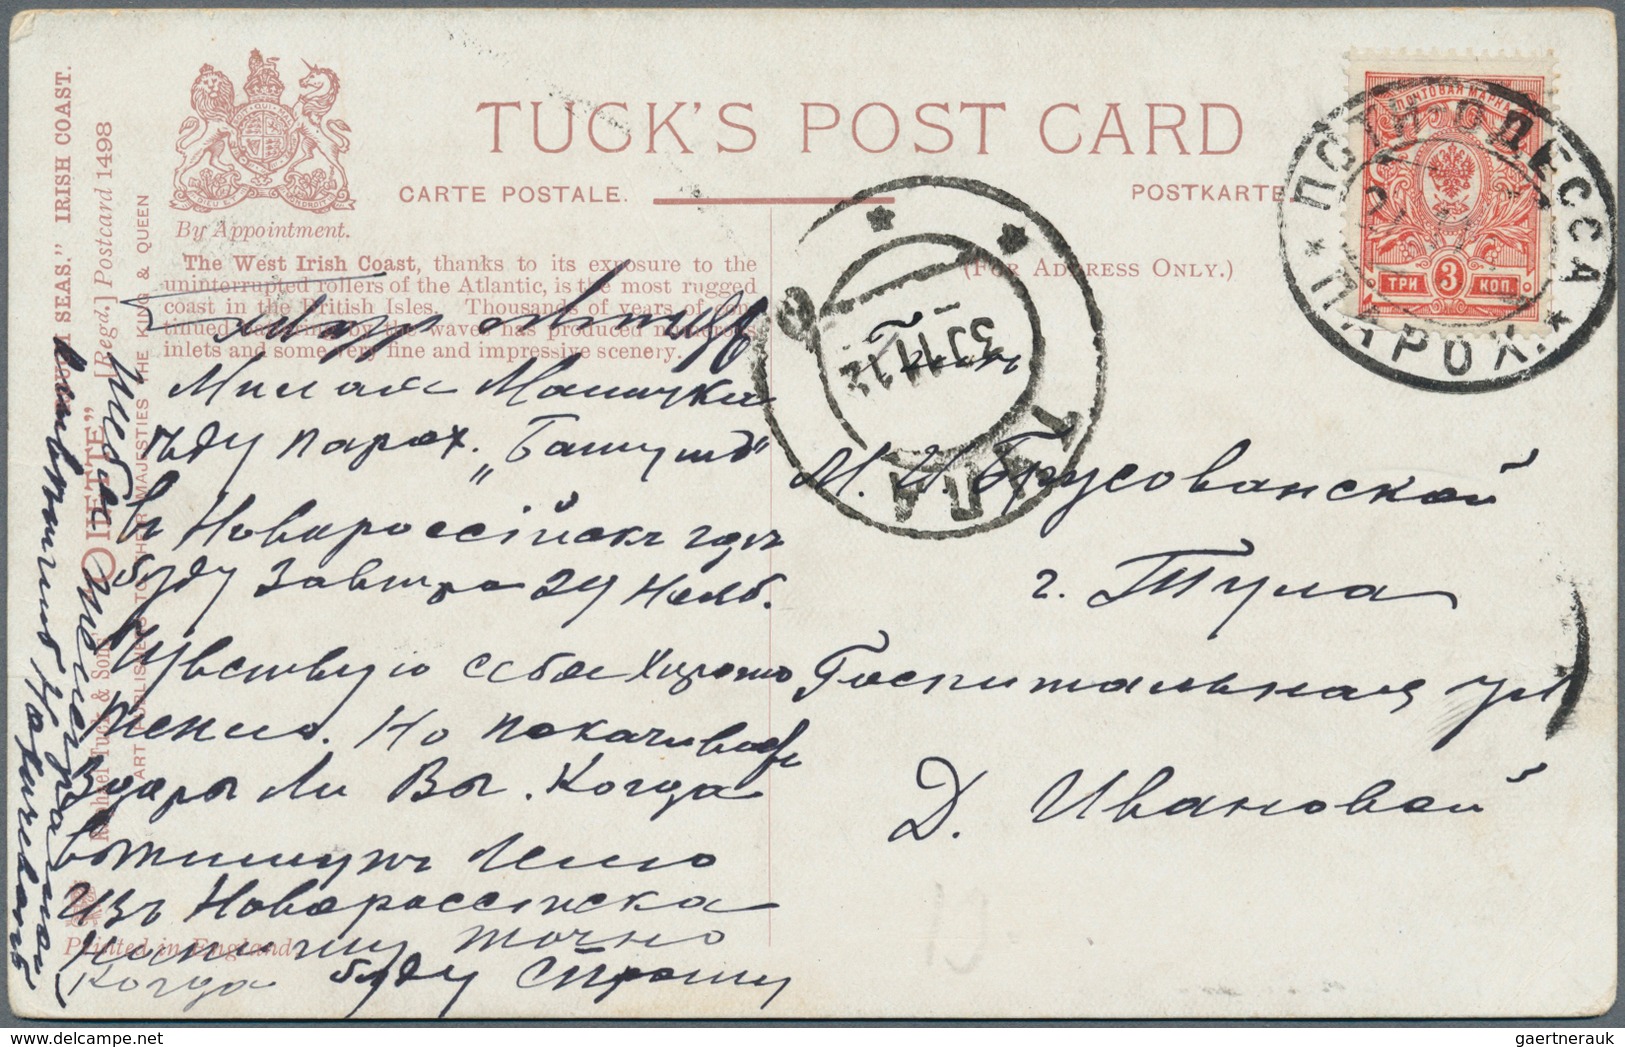 TUCK'S POST CARD
CARTE POSTALE.
POSTKARTE.
By Appointment.
(FOR ADDRESS ONLY.)
The West Irish Coast, thanks to its exposure to the
uninterrupted rollers of the Atlantic, is the most rugged
coast in the British Isles. Thousands of years of con-
tinued battering by the waves has produced numerous
inlets and some very fine and impressive scenery.
SEAS." IRISH COAST.
OILETTE" [Regd.] Postcard 1498
Raphael Tuck & Sons
ART PUBLISHERS TO THEIR MAJESTIES THE KING & QUEEN
Printed in England
ПОЧТОВАЯ МАРКА
ТРИ 3 КОП
ОДЕССА
ПАРОХ.
ТУЛА
30 11 12
Милая Маничка
ѣду парох.
въ Новороссійскъ гдѣ
буду завтра 29 Нояб.
Чувствую себя хорошо
Но покачивает
Здоровы ли Вы. Когда
изъ Новороссійска
напишу точно
Когда буду
М. И. Брусованской
г. Тула
Госпитальная ул
Д. Ивановой
gaertnerauk @ delcampe.net